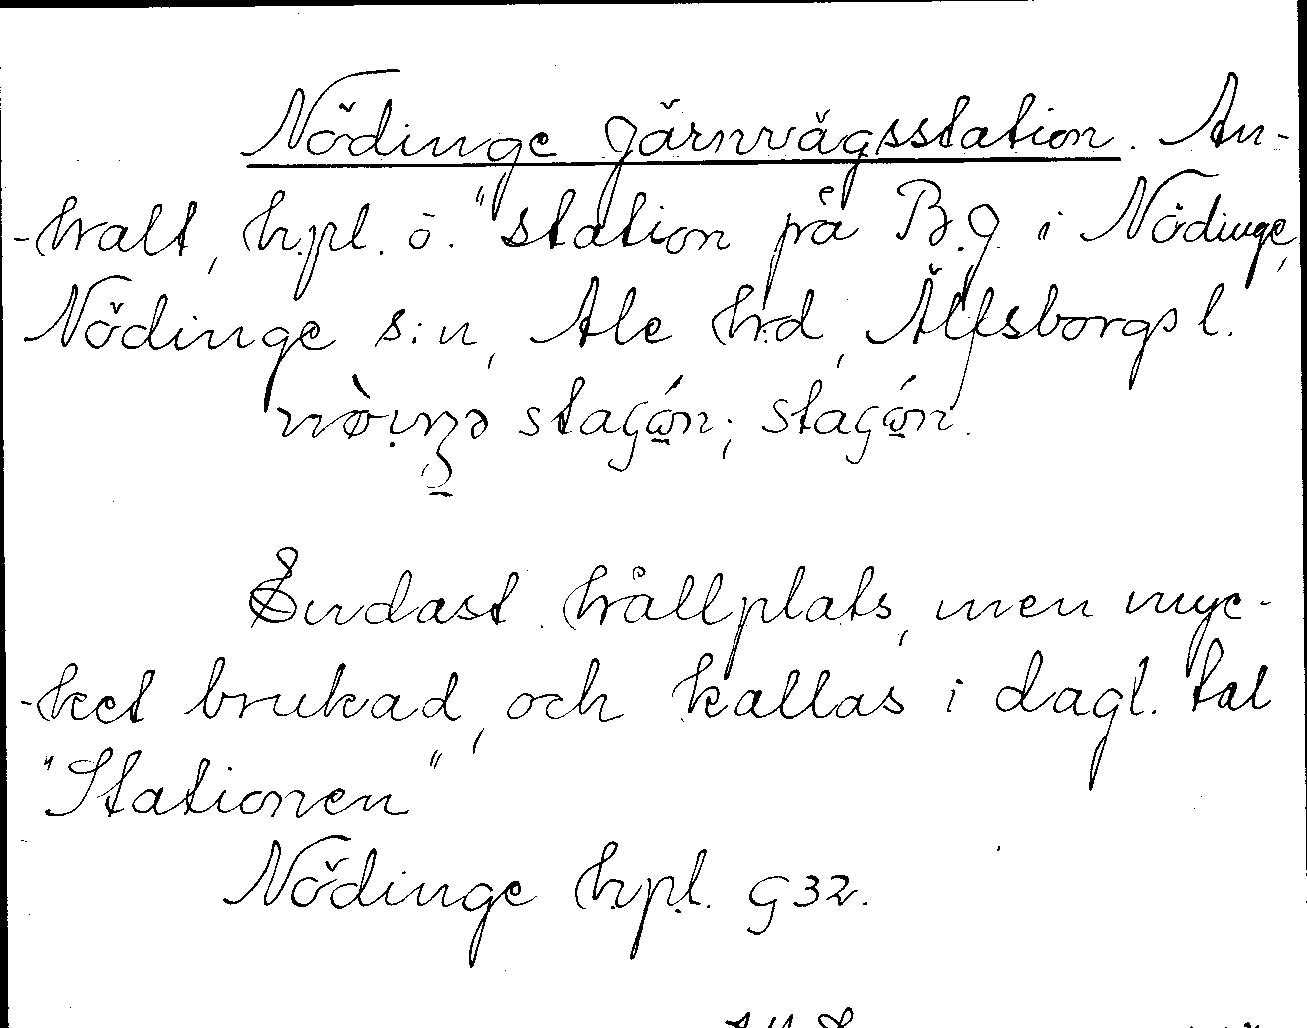 Nödinge Järnvägsstation. An-
-halt, hpl. o. "station på B.J. i Nödinge,
Nödinge s:n, Ale hrd, Älfsborgs l.
Endast hållplats, men myc-
-ket brukad, och kallas i dagl. tal
"Stationen"
Nödinge hpl. G32.